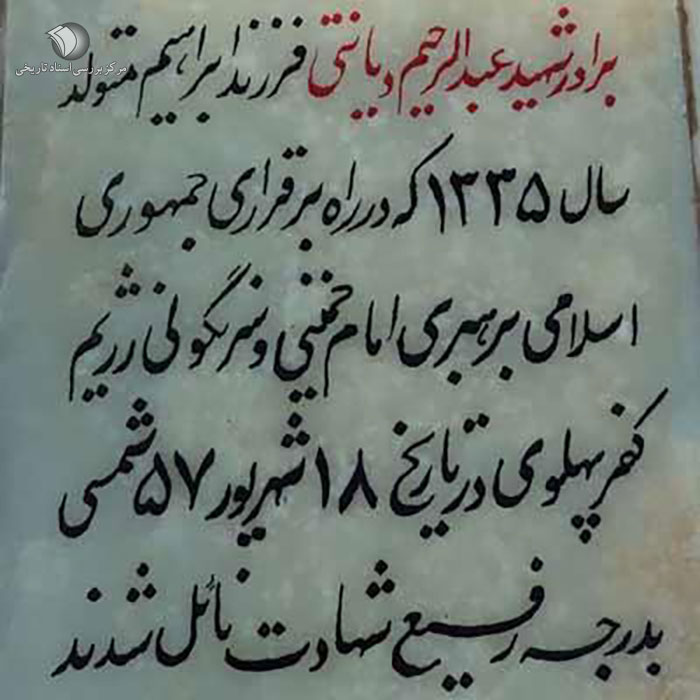 مرکز بررسی اسناد تاریخی
برادر شهید عبدالرحیم دیانتی فرزند ابراهیم متولد
سال ۱۳۳۵ که در راه برقراری جمهوری
اسلامی برهبری امام خمینی و سرنگونی رژیم
کفر پهلوی در تاریخ ۱۸ شهریور ۵۷ شمسی
بدرجه رفیع شهادت نائل شدند